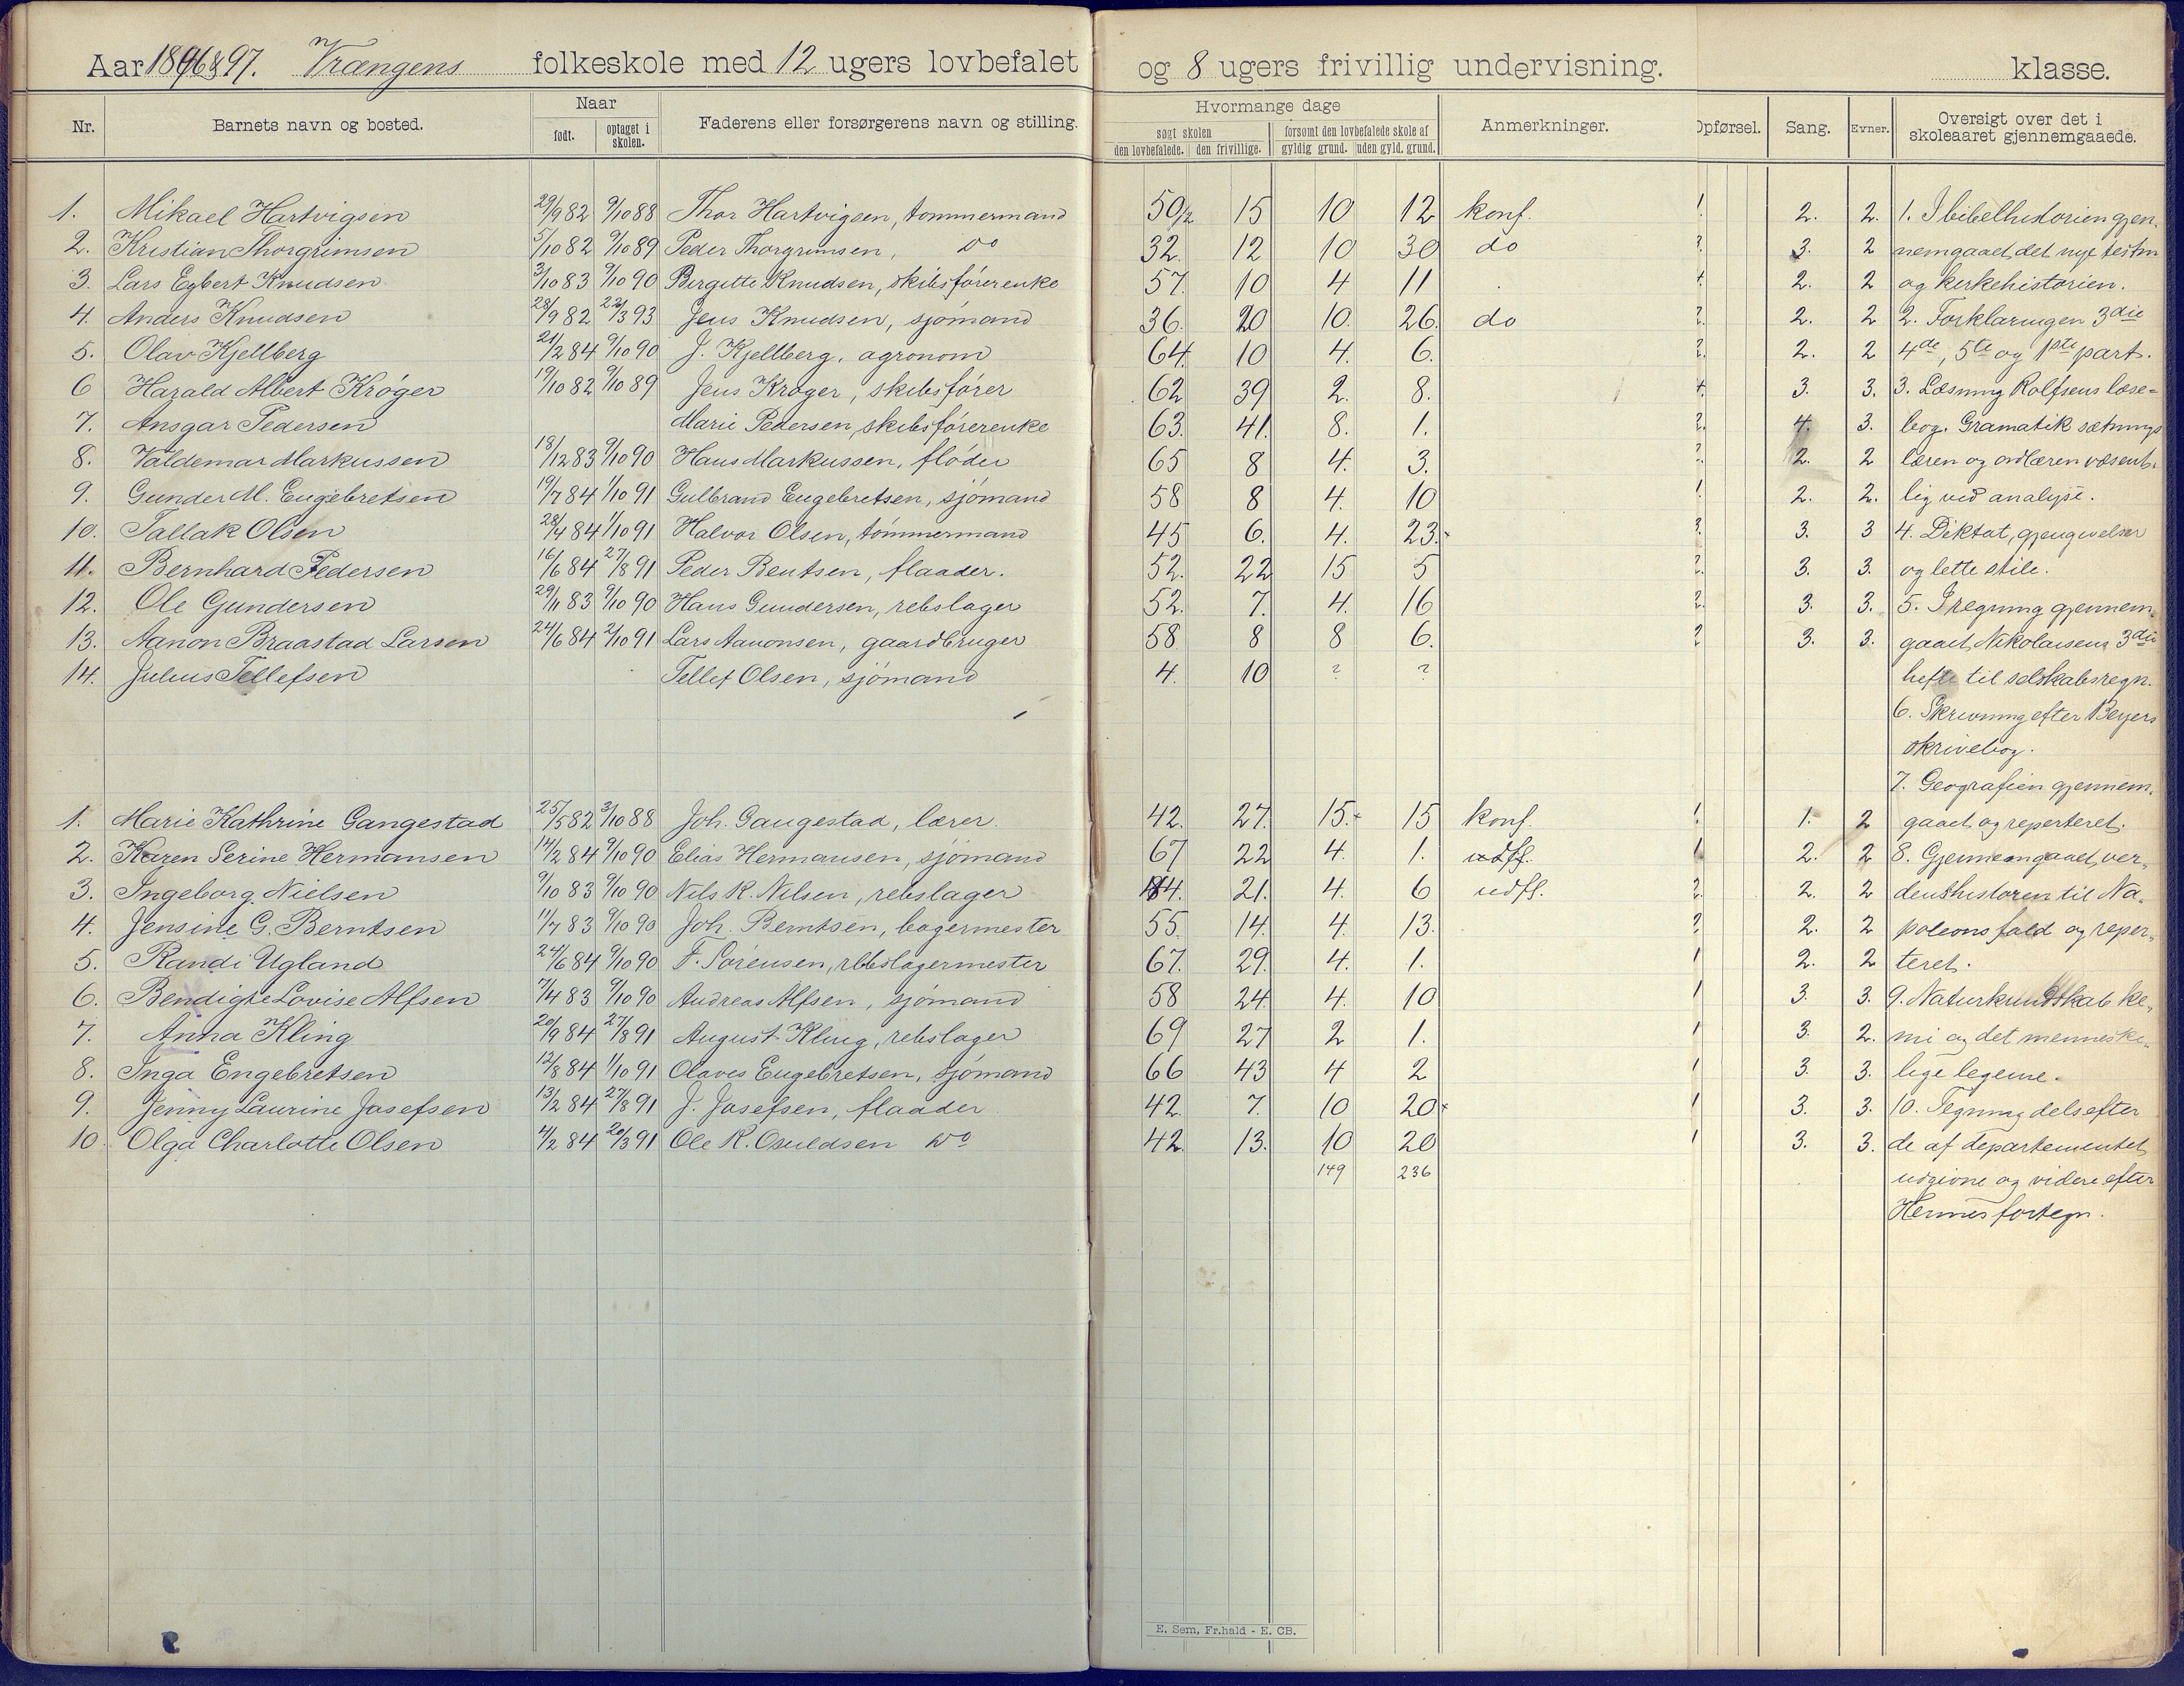 Aar 1896 & 97. Vrængens folkeskole med 12 ugers lovbefalet og 8 ugers frivillig undervisning. klasse.
Nr. Barnets navn og bosted. Naar født. optaget i skolen. Faderens eller forsørgerens navn og stilling. Hvormange dage søgt skolen den lovbefalede. den frivillige. forsømt den lovbefalede skole af gyldig grund. uden gyld. grund. Anmerkninger. Opførsel. Sang. Evner. Oversigt over det i skoleaaret gjennemgaaede.
1. Mikael Hartvigsen 29/9 82 9/10 88 Thor Hartvigsen, tømmermand 50 1/2 15 10 12 konf. 2. 2. 1. I bibelhistorien gjen-
2. Kristian Thorgrimsen 5/10 82 9/10 89 Peder Thorgrimsen, do 32. 12 10 30 do 3. 2 nemgaaet det nye testm
3. Lars Egbert Knudsen 3/10 83 9/10 90 Birgitte Knudsen, skibsførerenke 57. 10 4 11 2. 2 og kirkehistorien.
4. Anders Knudsen 28/9 82 22/3 93 Jens Knudsen, sjømand 36. 20 10. 26. do 2. 2 2. Forklaringen 3die
5. Olav Kjellberg 21/2 84 9/10 90 J. Kjellberg, agronom 64. 10 4. 6. 2. 2 4de, 5te og 1pte part.
6 Harald Albert Krøger 19/10 82 9/10 89 Jens Krøger, skibsfører 62 39 2. 8. 3. 3. 3. Læsning Rolfsens læse-
7. Ansgar Pedersen Marie Pedersen, skibsførerenke 63. 41. 8. 1. 4. 3. bog. Gramatik sætnings
8. Valdemar Markussen 18/12 83 9/10 90 Hans Markussen, fløder 65 8 4. 3. 2. 2 læren og ordlæren væsent-
9. Gunder M. Engebretsen 19/7 84 1/10 91 Gulbrand Engebretsen, sjømand 58 8 4. 10 2. 2. lig ved analyse.
10. Tallak Olsen 28/4 84 1/10 91 Halvor Olsen, tømmermand 45 6. 4. 23. 3. 3 4. Diktat, gjengivelser
11. Bernhard Pedersen 16/6 84 27/8 91 Peder Bentsen, flaader. 52. 22 15 5 3. 3. og lette stile.
12. Ole Gundersen 29/11 83 9/10 90 Hans Gundersen, rebslager 52. 7. 4. 16 3. 3. 5. I regning gjennem-
13. Aanon Braastad Larsen 24/6 84 2/10 91 Lars Aanonsen, gaardbruger 58 8 8 6. 3. 3. gaaet Nikolaisens 3die
14. Julius Tellefsen Tellef Olsen, sjømand 4. 10 ? ? hefte til selskabsregn.
6. Skrivning efter Beyers
skrivebog.
7. Geografien gjennem-
1. Marie Kathrine Gangestad 25/5 82 3/10 88 Joh. Gangestad, lærer. 42. 27. 15. 15 konf. 1. 2 gaaet og reperteret.
2. Karen Serine Hermansen 14/2 84 9/10 90 Elias Hermansen, sjømand 67 22 4. 1. udff. 2. 2 8. Gjennemgaaet ver-
3. Ingeborg Nielsen 9/10 83 9/10 90 Nils R. Nilsen, rebslager 21. 4. 6 udff. 2. 2 denshistorien til Na-
4. Jensine G. Berntsen 11/7 83 9/10 90 Joh. Berntsen, bagermester 55. 14. 4. 13. 2. 2 poleons fald og reper-
5. Randi Ugland 24/6 84 9/10 90 F. Sørensen, rebslagermester 67. 29. 4. 1. 2. 2 teret.
6. Bendigte Lovise Alfsen 7/4 83 9/10 90 Andreas Alfsen, sjømand 58 24. 4. 10 3. 3. 9. Naturkundskab ke-
7. Anna Kling 20/9 84 27/8 91 August Kling, rebslager 69 27 2 1. 3. 2. mi og det menneske-
8. Inga Engebretsen 12/8 84 1/10 91 Olaves Engebretsen, sjømand 66 43 4 2 3. 3. lige legeme.
9. Jenny Laurine Josefsen 13/2 84 27/8 91 J. Josefsen, flaader 42. 7. 10 20 3. 3. 10. Tegning dels efter
10. Olga Charlotte Olsen 4/2 84 20/3 91 Ole R. Osuldsen do 42. 13. 10 20 3. 3. de af departementet
149 236 udgivne og videre efter
Hermes fortegn.
E. Sem, Fr.hald - E. CB.